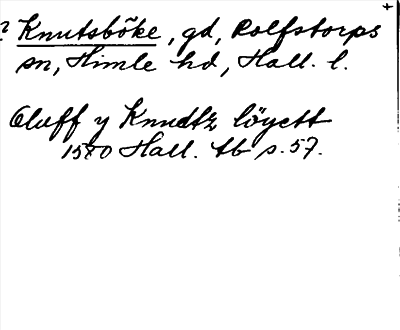 Knutsböke, gd, Rolfstorps
sn, Himle hd, Hall. l.
Oluff y Knudtz löyett
1580 Hall. tb s. 57.